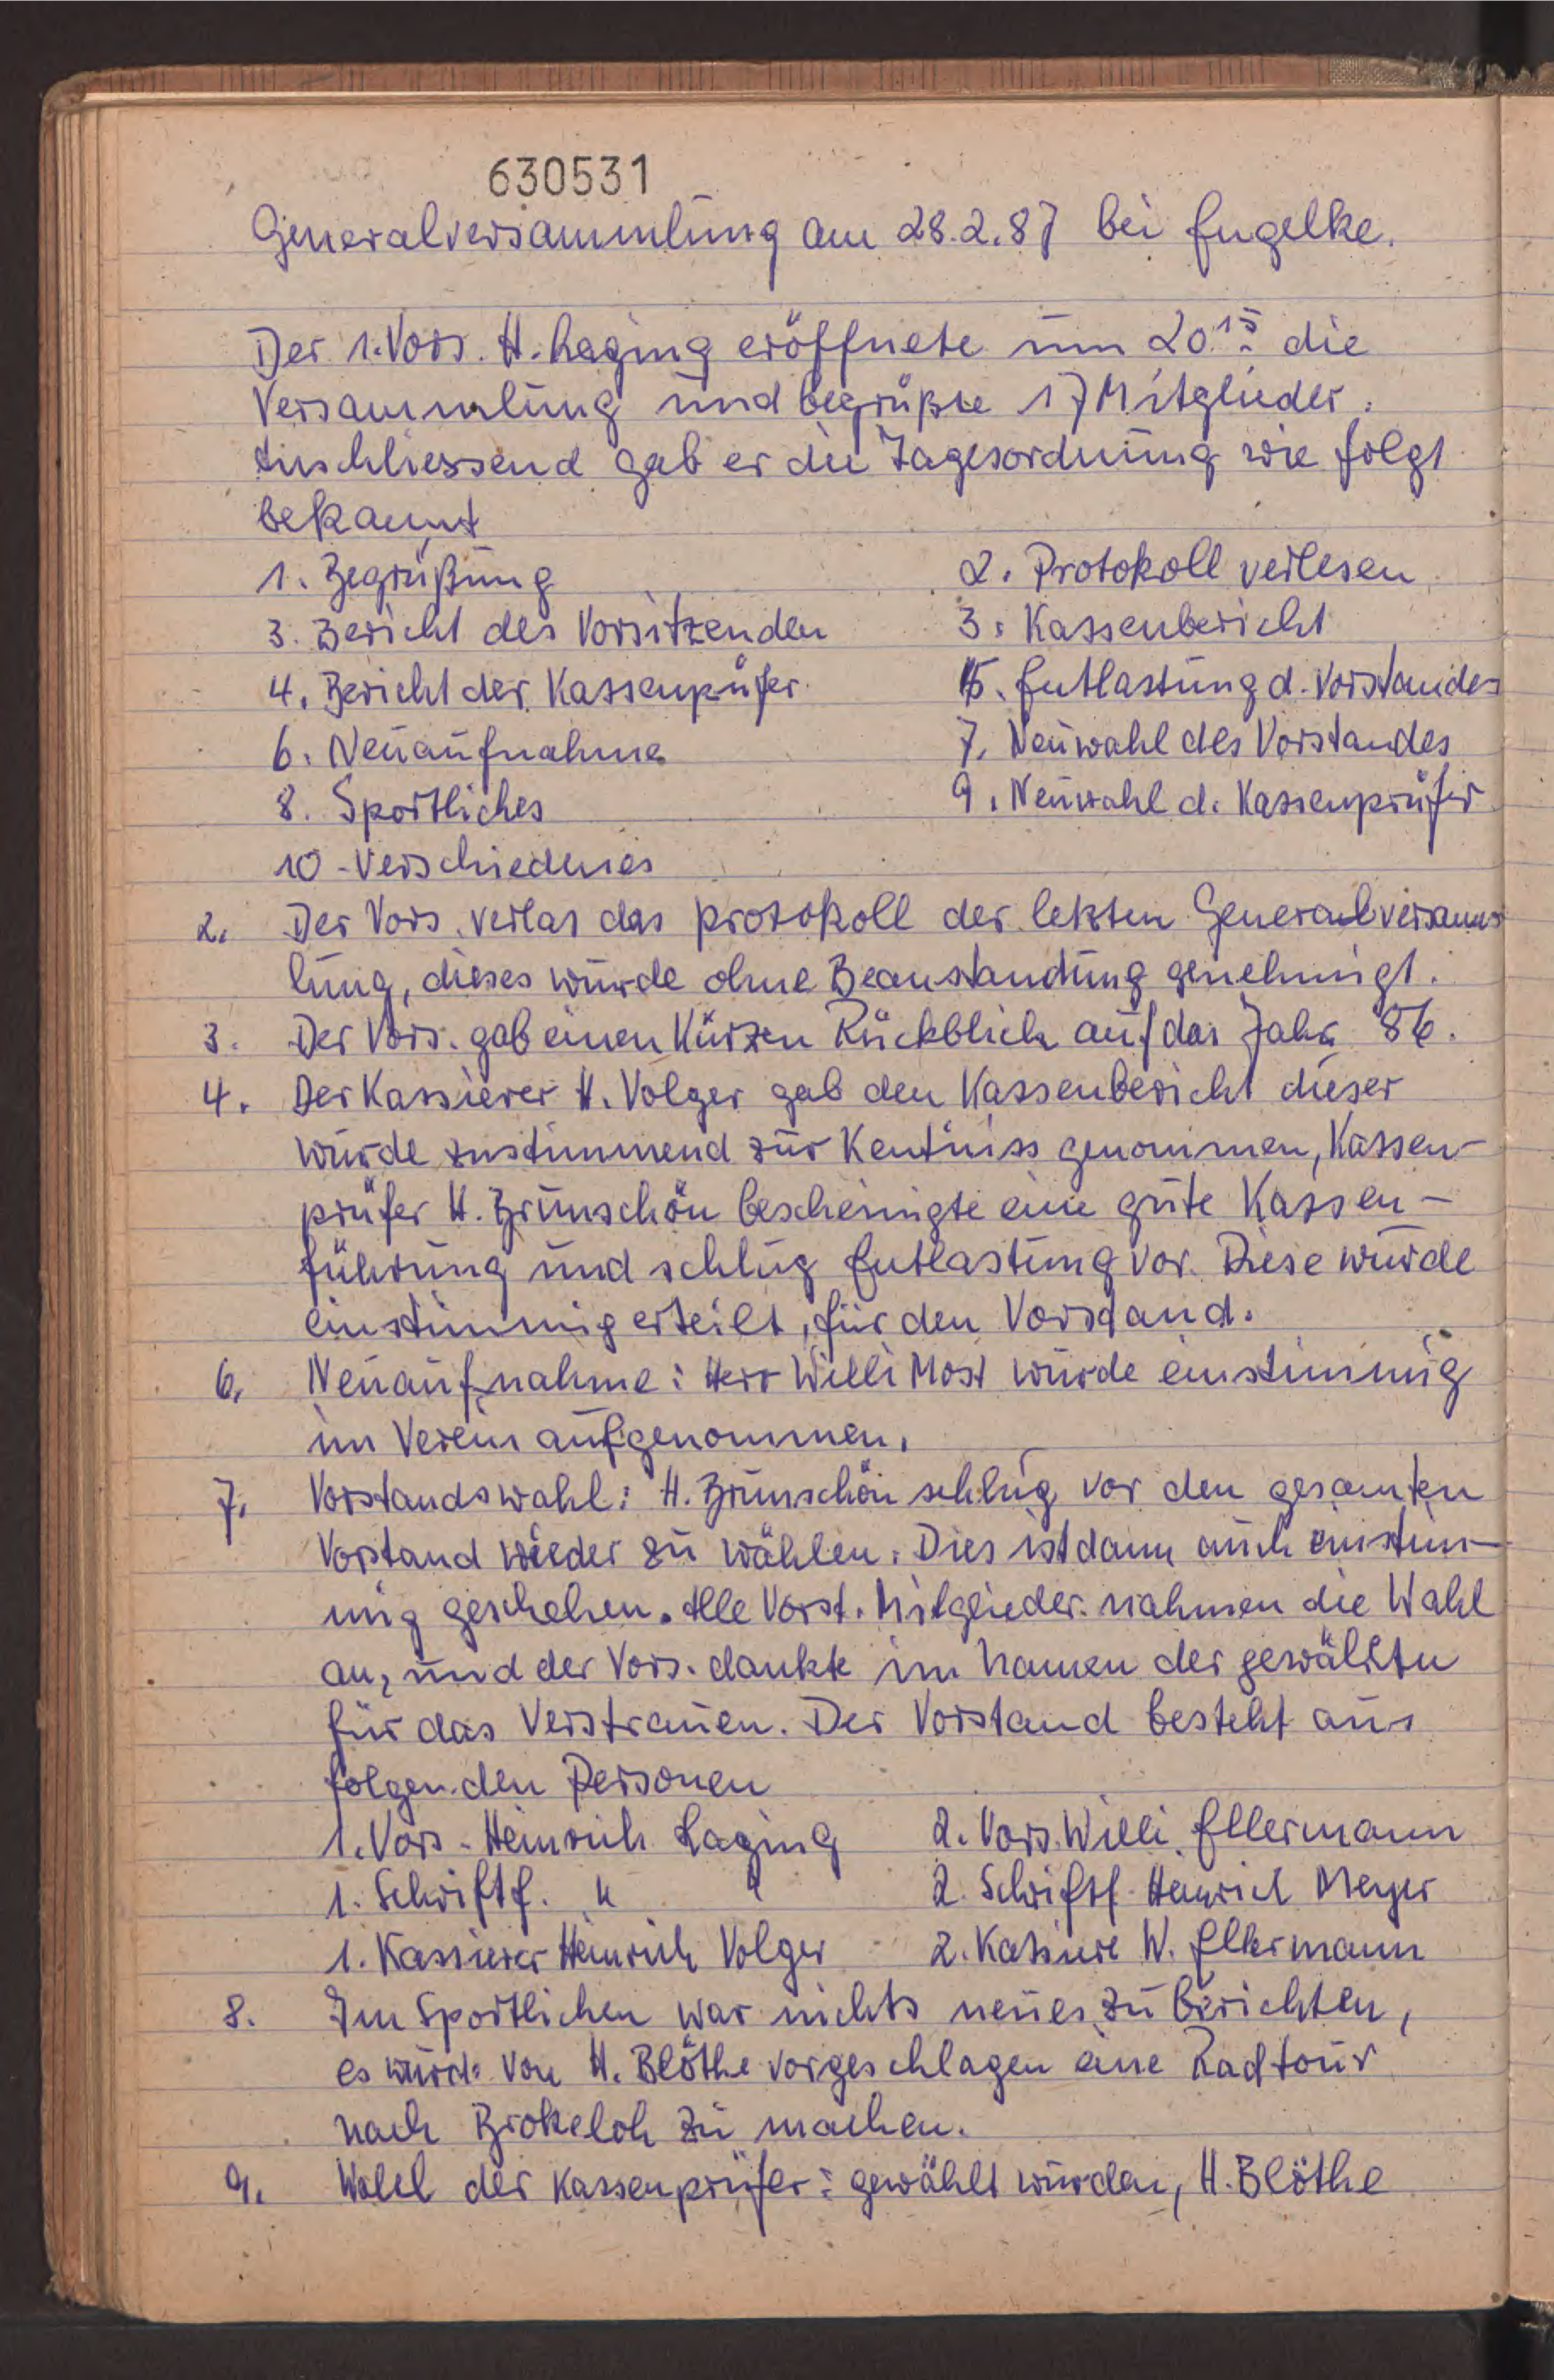 630531
Generalversammlung am 28.2.87 bei Engelke.
Der 1. Vors. H. Laging eröffnete um 20.15 die
Versammlung und begrüßte 17 Mitglieder.
Anschliessend gab er die Tagesordnung wie folgt
bekannt
1. Begrüßung 2. Protokoll verlesen
3. Bericht des Vorsitzenden 3. Kassenbericht
4. Bericht der Kassenprüfer 5. Entlastung d. Vorstandes
6. Neuaufnahme 7. Neuwahl des Vorstandes
8. Sportliches 9. Neuwahl d. Kassenprüfer
10 - Verschiedenes
2. Der Vors. verlas das Protokoll der letzten Generalversamm
lung, dieses wurde ohne Beanstandung genehmigt.
3. Der Vors. gab einen Kurzen Rückblick auf das Jahr 86.
4. Der Kassierer H. Volger gab den Kassenbericht dieser
wurde zustimmend zur Kentniss genommen, Kassen-
prüfer H. Brunschön bescheinigte eine gute Kassen-
führung und schlug Entlastung vor. Diese wurde
einstimmig erteilt, für den Vorstand.
6. Neuaufnahme: Herr Willi Most wurde einstimmig
im Verein aufgenommen.
7. Vorstandswahl: H. Brunschön schlug vor den gesamten
Vorstand wieder zu wählen. Dies ist dann auch einstim-
mig geschehen. Alle Vorst. Mitglieder nahmen die Wahl
an, und der Vors. dankte im Namen der gewählten
für das Verstrauen. Der Vorstand besteht aus
folgenden Personen
1. Vors - Heinrich Laging 2. Vors. Willi Ellermann
1. Schriftf. " " 2. Schriftf. Heinrich Meyer
1. Kassierer Heinrich Volger 2. Kassiere W. Ellermann
8. Im Sportlichen war nichts neues zu berichten,
es wurde von H. Blöthe vorgeschlagen eine Radtour
nach Brokeloh zu machen.
9. Wahl der Kassenprüfer: gewählt wurden, H. Blöthe